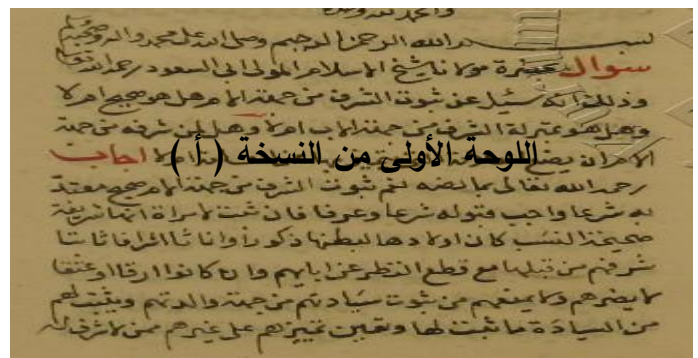 بسم الله الرحمن الرحيم وصلى الله على محمد واله وصحبه
سوال لحضرة مولانا شيخ الاسلام المولى ابي السعود رحمه الله تعالى
وذلك انه سئل عن ثبوت الشرف من جهة الام هل هو صحيح ام لا
وهل هو بمنزلة الشرف من جهة الاب ام لا وهل لمن شرفه من جهة
الام ان يضع ام لا اجاب
اللوحة الأولى من النسخة ( أ )
رحمه الله تعالى بما نصه نعم ثبوت الشرف من جهة الام صحيح معتد
به شرعا واجب قبوله شرعا وعرفا فان ثبت لامراة انها شريفة
صحيحة النسب كان اولادها لبطنها ذكورا واناثا اشرافا ثابتا
شرفهم من قبلها مع قطع النظر عن ابايهم وان كانوا ارقا او عتقا
لا يضرهم ولا يمنعهم من ثبوت سيادتهم من جهة والدتهم ويثبت لهم
من السيادة ما ثبت لها وتعين تمييزهم على غيرهم ممن لا شرف له